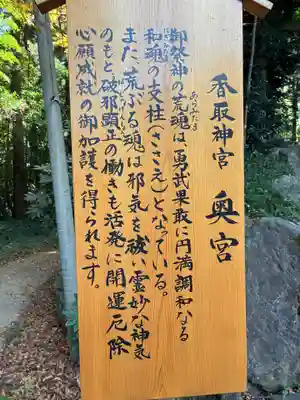 香取神宮 奥宮
御祭神の荒魂は、勇武果敢に円満調和なる
和魂の支柱(ささえ)となっている。
また、荒ぶる魂は邪気を祓い霊妙な神気
のもと破邪顕正の働きも活発に開運厄除
心願成就の御加護を得られます。